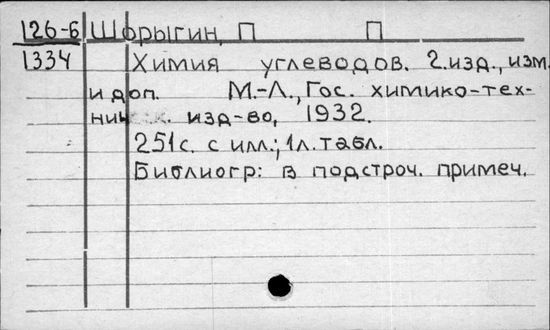 126-Б Шорыгин, П П
1334 Химия углеводов. 2.изд., изм.
и доп. М.-Л., Гос. химико-тех-
нич. изд-во, 1932.
251с. с илл.; 1л. табл.
Библиогр: в подстроч. примеч.